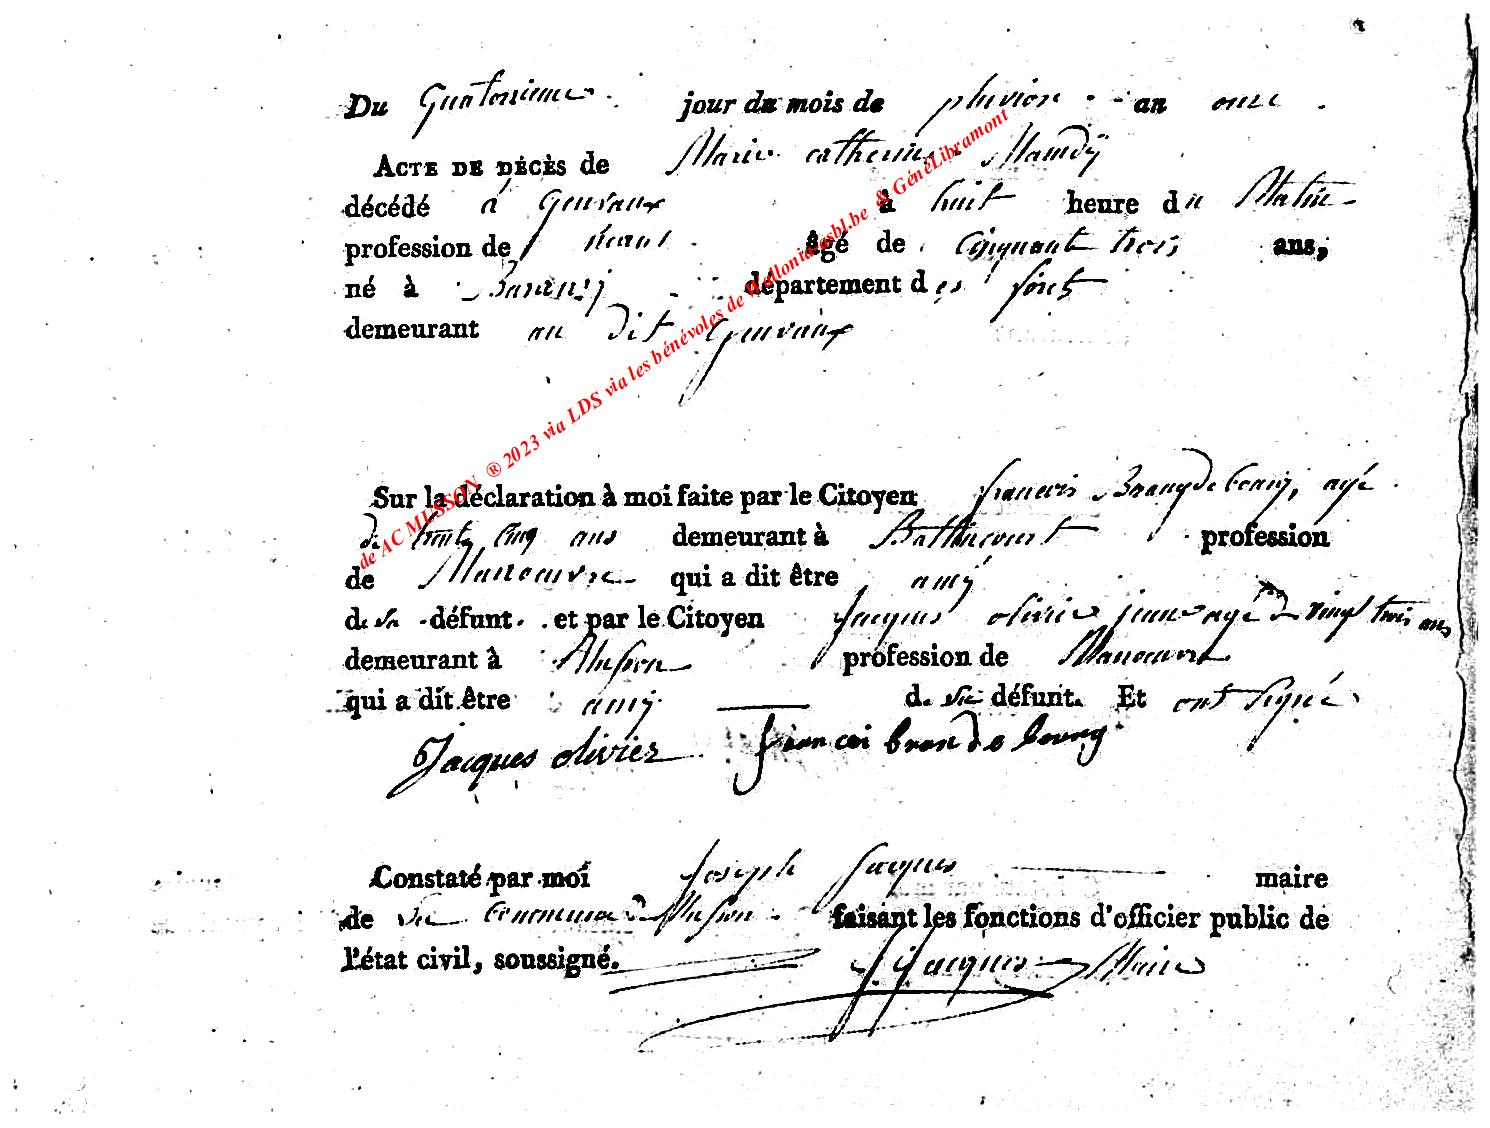 Du Quatorsieme jour du mois de pluviose an onze
ACTE DE DÉCÈS de Marie catherine Maudÿ
décédé á Geuvaux à huit heure du Matin
profession de néant âgé de Cinquant trois ans,
né à Baranzÿ département des foret
demeurant au dit Geuvaux
Sur la déclaration à moi faite par le Citoyen francois Brandebourg, agé
de trente Cinq ans demeurant à Battincourt profession
de Manoeuvre qui a dit être amÿ
de la défunt. et par le Citoyen Jacques olivier jeune agé de vingt trois ans
demeurant à Musson profession de Manoeuvre
qui a dit être amÿ de la défunt. Et ont signé
Jacques olivier francoi brandebourg
Constaté par moi Joseph Jacques maire
de la Commune de Musson faisant les fonctions d'officier public de
l'état civil, soussigné. J Jacques Maire
de AC MUSSON ® 2023 via LDS via les bénévoles de Walloniaasbl.be & GénéLibramont